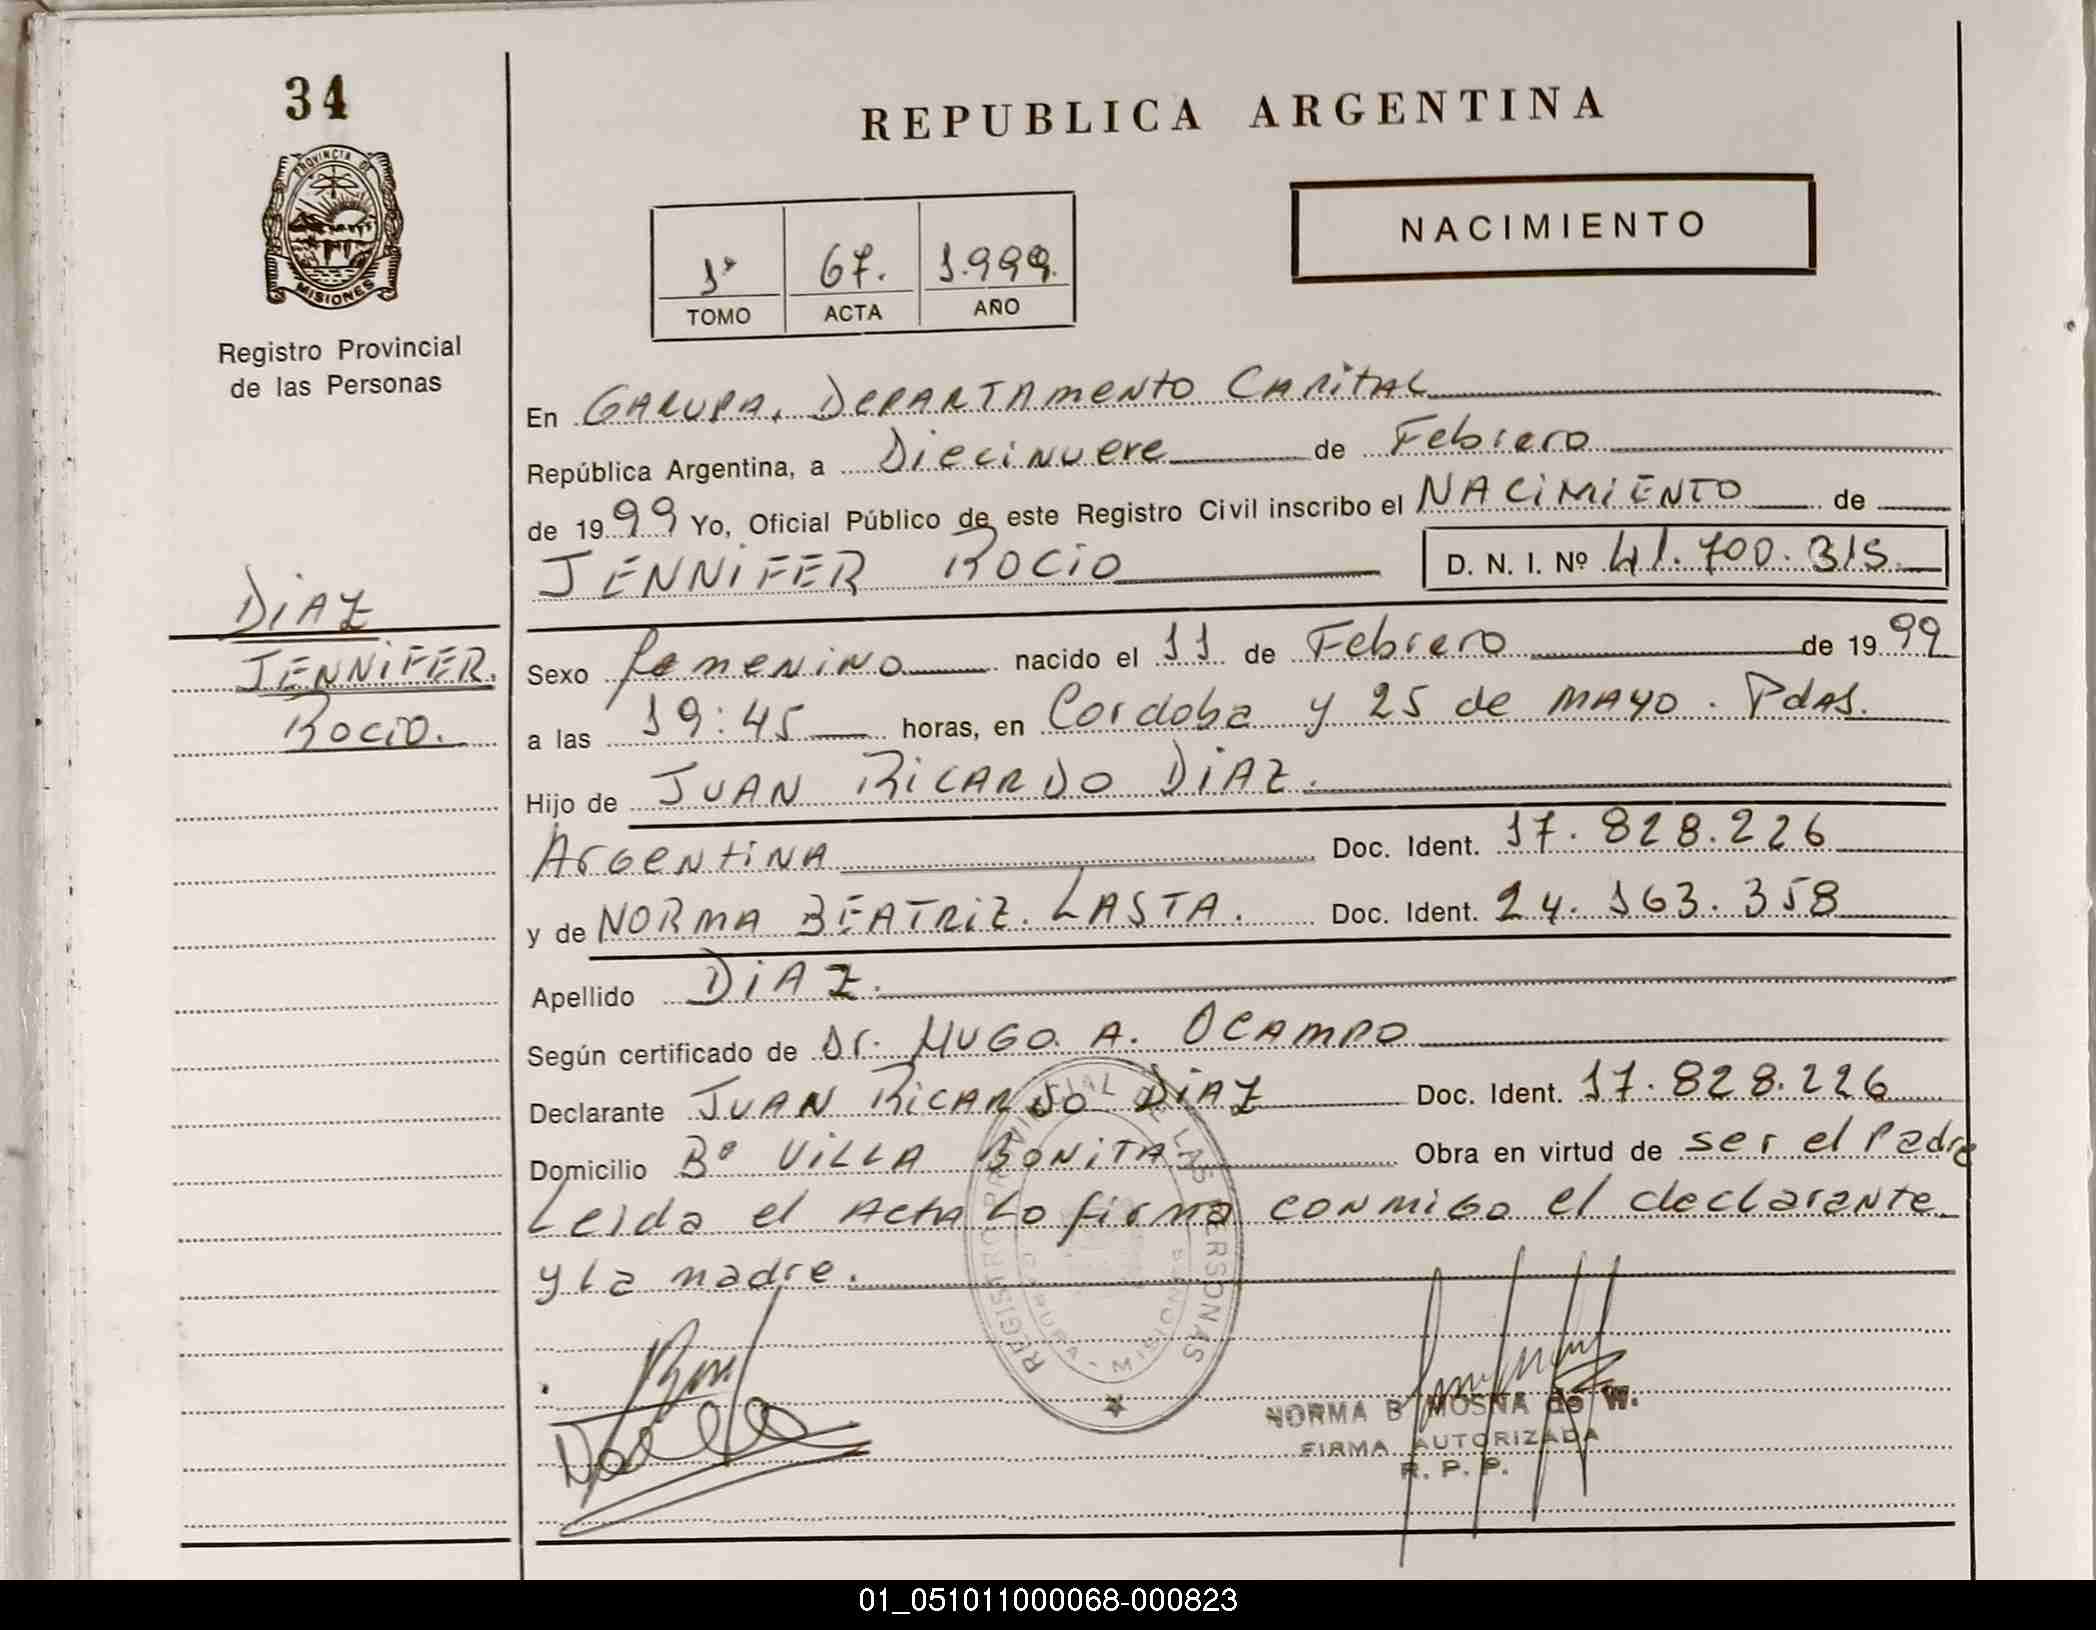 34
PROVINCIA DE
MISIONES
Registro Provincial
de las Personas
DIAZ
JENNIFER.
ROCIO.
REPUBLICA ARGENTINA
NACIMIENTO
1º 67. 1.999.
TOMO ACTA AÑO
En GARUPA, DEPARTAMENTO CAPITAL
República Argentina, a Diecinueve de Febrero
de 1999 Yo, Oficial Público de este Registro Civil inscribo el NACIMIENTO de
JENNIFER ROCIO D. N. I. Nº 41.700.315
Sexo femenino nacido el 11 de Febrero de 1999
a las 19:45 horas, en Cordoba y 25 de MAYO. Pdas.
Hijo de JUAN RICARDO DIAZ.
ARGENTINA Doc. Ident. 17.828.226
y de NORMA BEATRIZ. LASTA. Doc. Ident. 24.163.358
Apellido DIAZ.
Según certificado de Dr. HUGO. A. OCAMPO
Declarante JUAN RICARDO DIAZ Doc. Ident. 17.828.226
Domicilio Bº VILLA BONITA Obra en virtud de ser el Padre
Leida el Acta Lo firma conmigo el declarante
y la madre.
REGISTRO PROVINCIAL DE LAS PERSONAS
GARUPA - MISIONES
NORMA B MOSNA de W.
FIRMA AUTORIZADA
R. P. P.
01_051011000068-000823